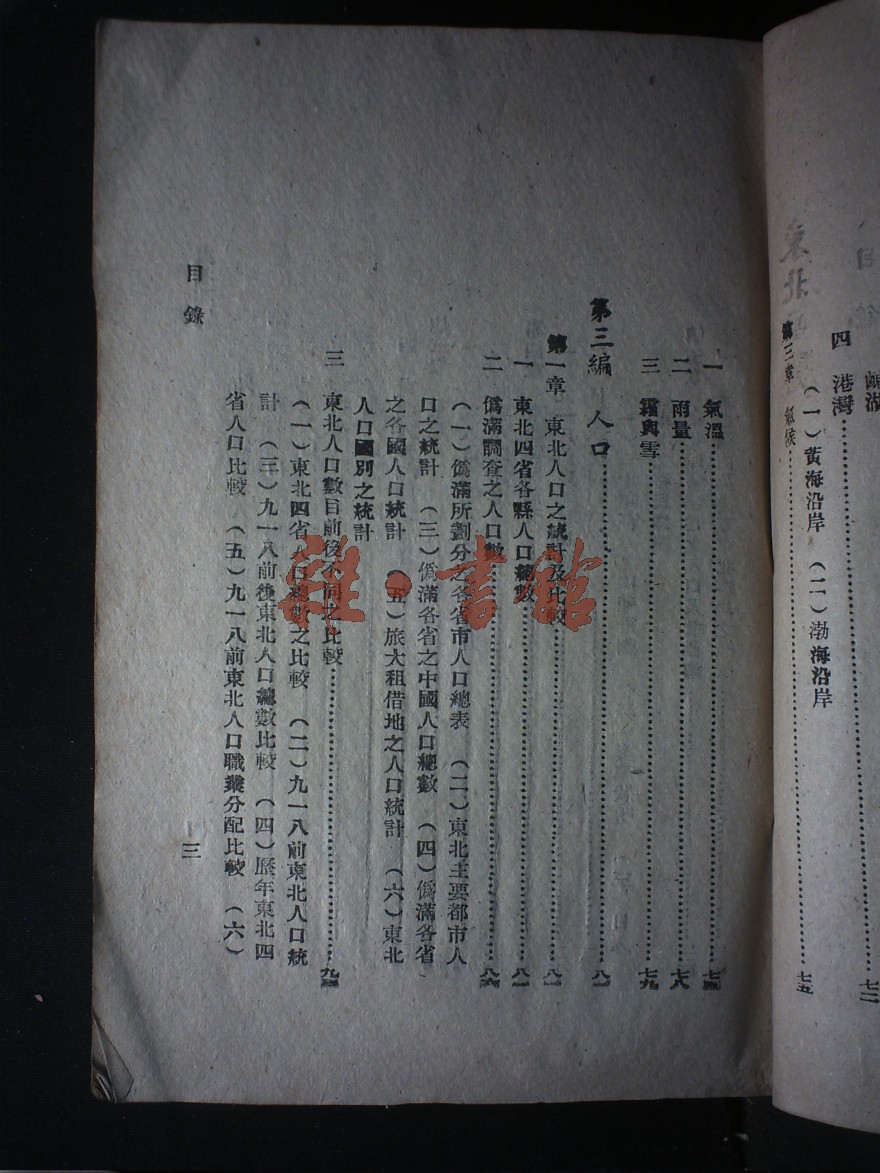 鹹湖
七二
四 港灣
（一）黃海沿岸 （二）渤海沿岸
第三章 氣候…………七五
東北
一 氣溫…………七五
二 雨量…………七八
三 霜與雪…………七九
第三編 人口…………八一
第一章 東北人口之統計及比較…………八一
一 東北四省各縣人口總數…………八一
二 僞滿調查之人口數…………八六
（一）僞滿所劃分之各省市人口總表 （二）東北主要都市人
口之統計 （三）僞滿各省之中國人口總數 （四）僞滿各省
之各國人口統計 （五）旅大租借地之人口統計 （六）東北
人口國別之統計
三 東北人口數目前後不同之比較…………九三
（一）東北四省人口總數之比較 （二）九一八前東北人口統
計 （三）九一八前後東北人口總數比較 （四）歷年東北四
省人口比較 （五）九一八前東北人口職業分配比較 （六）
目錄
三
雜·書館